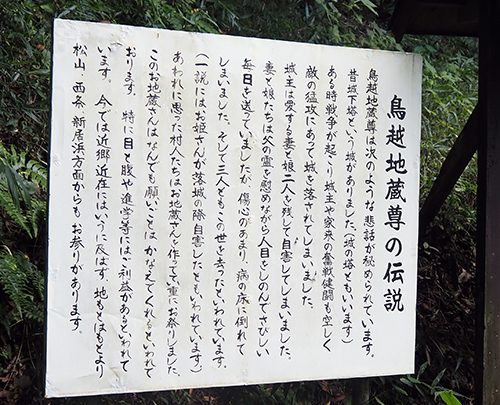 鳥越地蔵尊の伝説
鳥越地蔵尊は次のような悲話が秘められています。
昔城下塔という城がありました(城の塔ともいいます)
ある時戦争が起こり、城主や家来の奮戦健闘も空しく
敵の猛攻にあって城を落されてしまいました。
城主は愛する妻と娘二人を残して自害してしまいました。
妻と娘たちは父の霊を慰めながら人目をしのんでさびしい
毎日を送っていましたが、傷心があまり、病の床に倒れて
しまいました。そして三人ともこの世を去ったといわれています。
(一説にはお姫さんが落城の際自害したともいわれています)
あわれに思った村人たちはお地蔵さんを作って丁重にお祭りしました。
このお地蔵さんはなんでも願いごとはかなえてくれるといわれて
おります。 特に目と腹や進学等にはご利益があるといわれて
います。 今では近郷近在にはいうにんばず、地もとはもとより
松山、西条、新居浜方面からもお参りがあります。